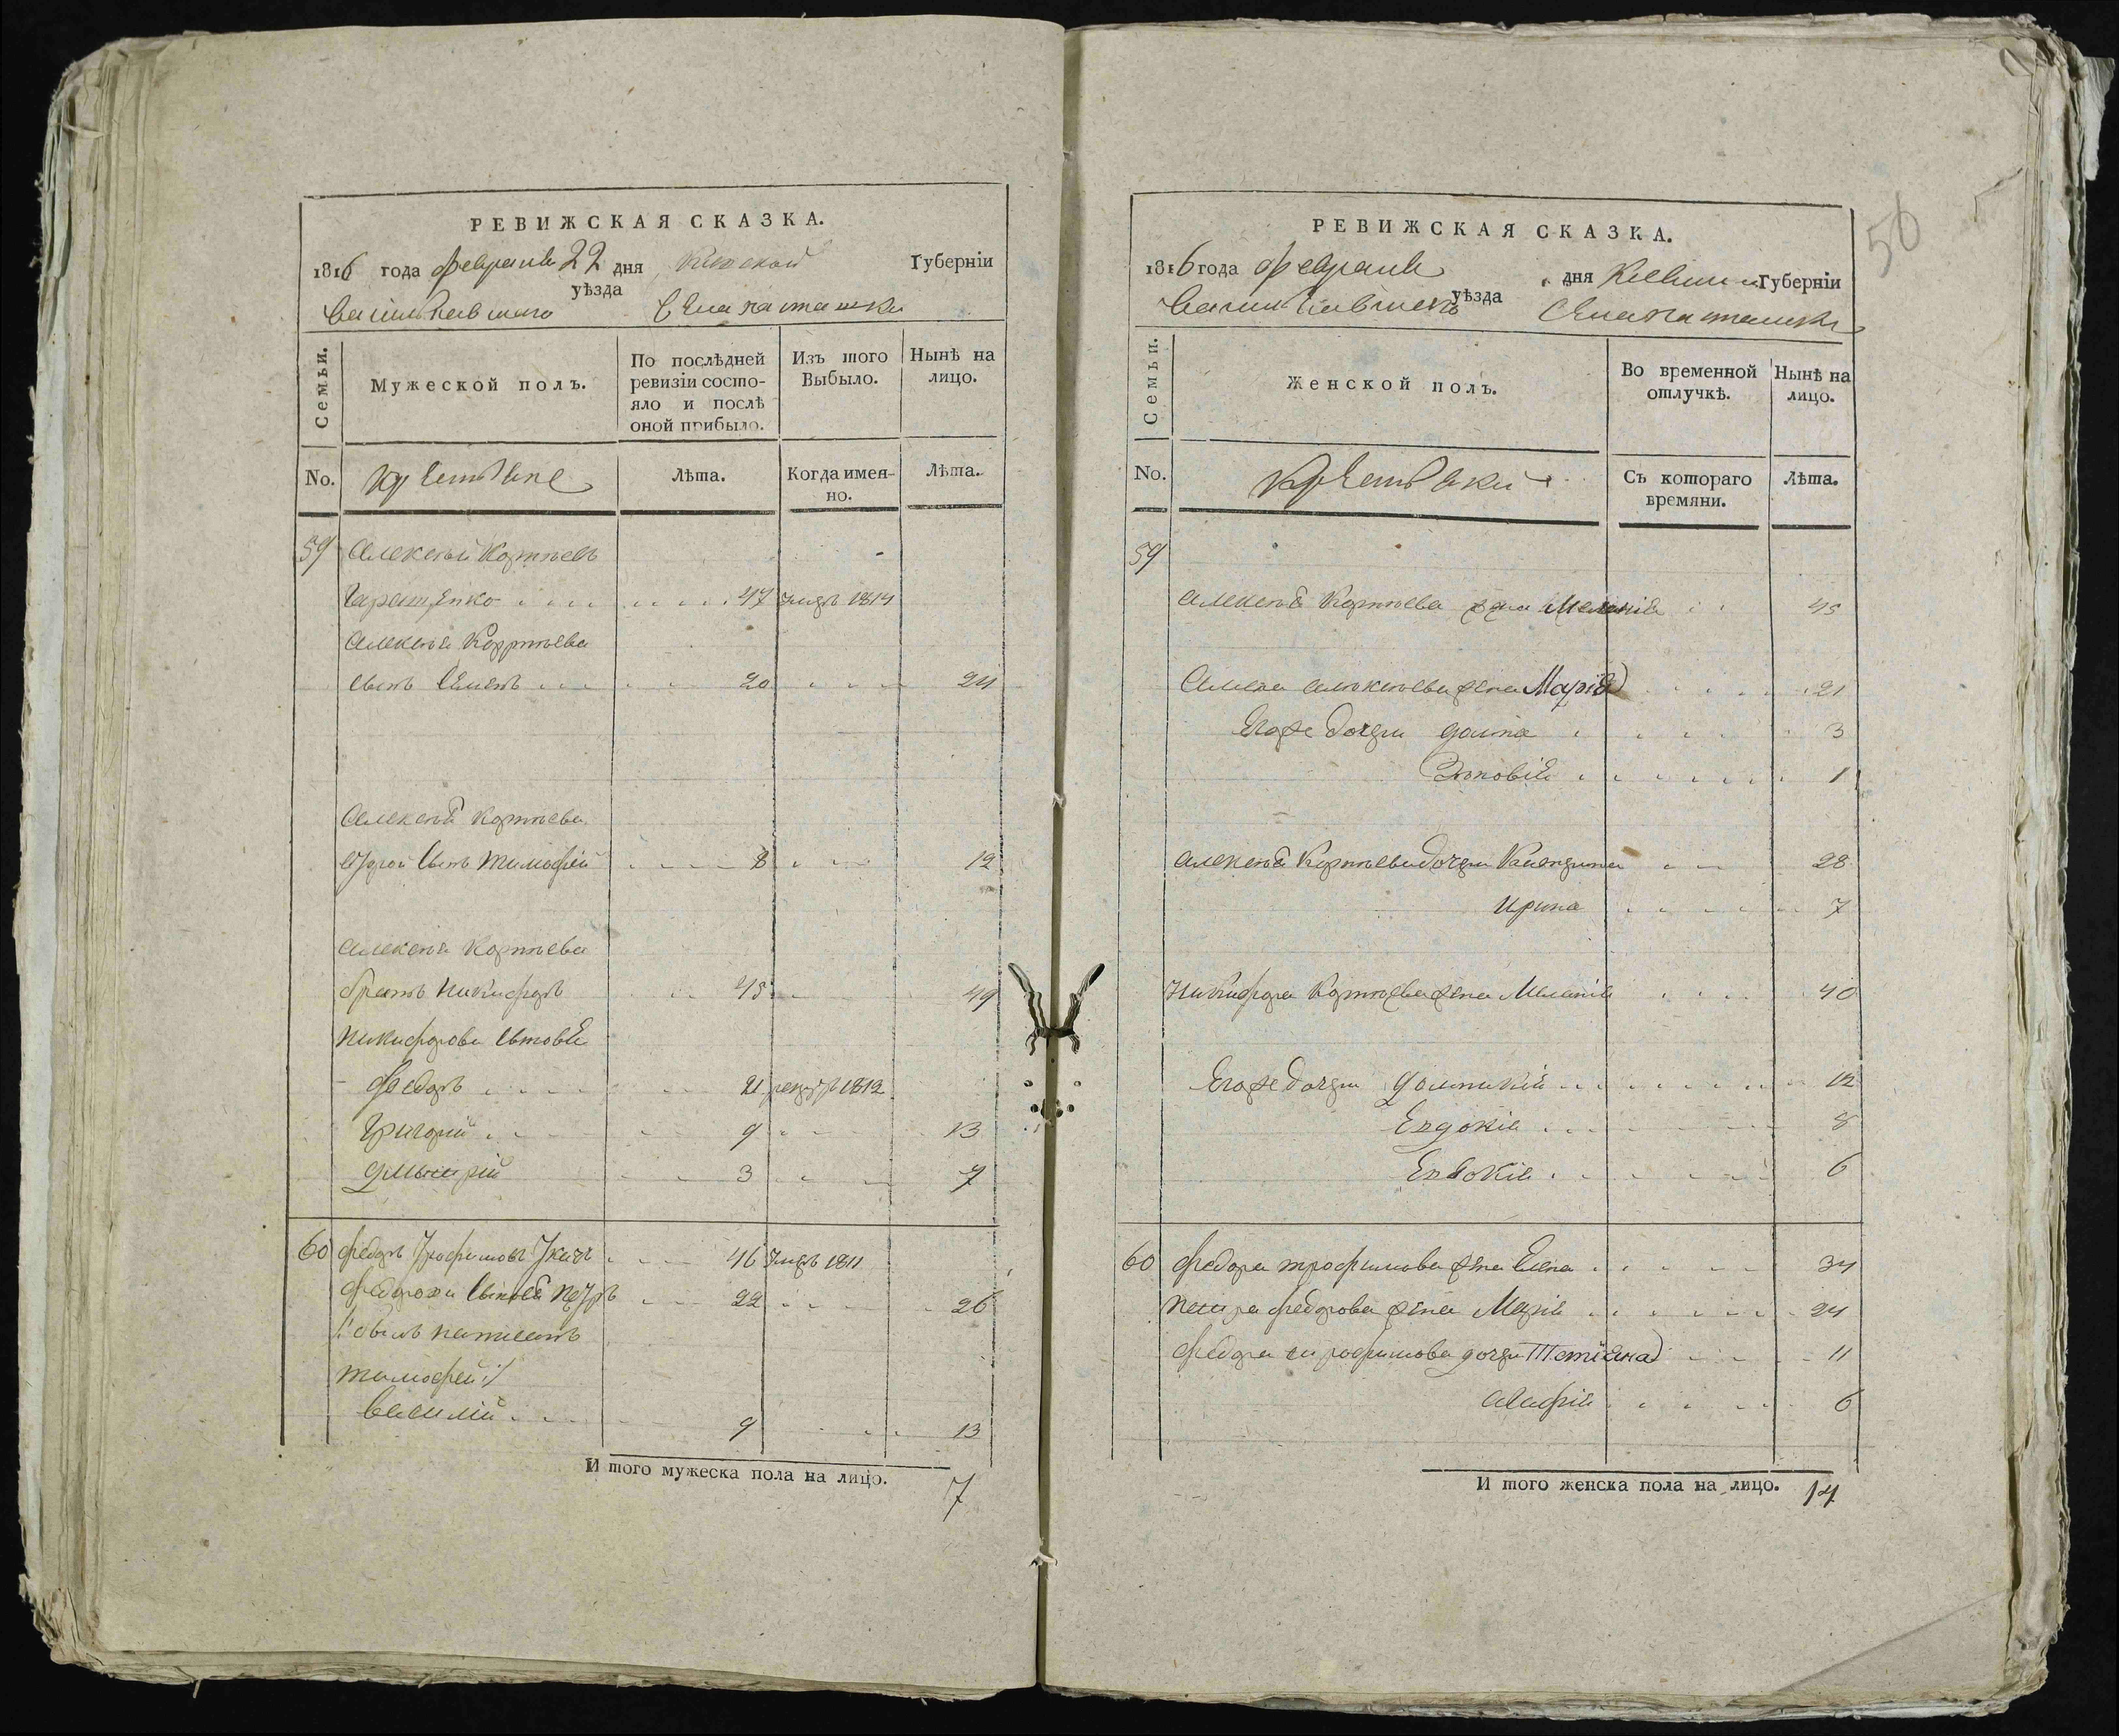 РЕВИЖСКАЯ СКАЗКА.
1816 года февраля 22 дня Киевской Губерніи
Васильковского уѣзда Села Питашки
Семьи.
Мужеской полъ.
По послѣдней ревизіи состояло и послѣ оной прибыло.
Изъ того Выбыло.
Нынѣ на лицо.
No. Крестьяне Лѣта. Когда именно. Лѣта.
59 Алексѣй Корнѣевъ
47 умеръ 1814
Алексѣя Корнѣева
сынъ Семенъ 20 24
Алексѣя Корнѣева
другой сынъ Тимофей 8 12
Алексѣя Корнѣева
братъ Никифоръ 45 49
Никифорова сыновья
Федоръ 21 рекрутъ 1812
Григорій 9 13
Дмитрій 3 7
60 Федоръ Трофимовъ 46 умеръ 1811
Федорова сыновья Петръ 22 26
Тимофей
Василій 9 13
И того мужеска пола на лицо. 7
50
РЕВИЖСКАЯ СКАЗКА.
1816 года февраля дня Киевской Губерніи
Васильковского уѣзда Села Питашки
Семьи.
Женской полъ.
Во временной отлучкѣ.
Нынѣ на лицо.
No. Крестьянки Съ котораго времяни. Лѣта.
59
Алексѣя Корнѣева жена Меланія 45
Семена Алексѣева жена Марія 21
Его же дочери 3
Зѣновія 1
Алексѣя Корнѣева дочери 28
Ирина 7
Никифора Корнѣева жена Меланія 40
Его же дочери 12
Евдокія 8
Евдокія 6
60 Федора Трофимова жена Елена 34
Петра Федорова жена Марія 24
Федора Трофимова дочери Татіяна 11
Агафія 6
И того женска пола на лицо. 14